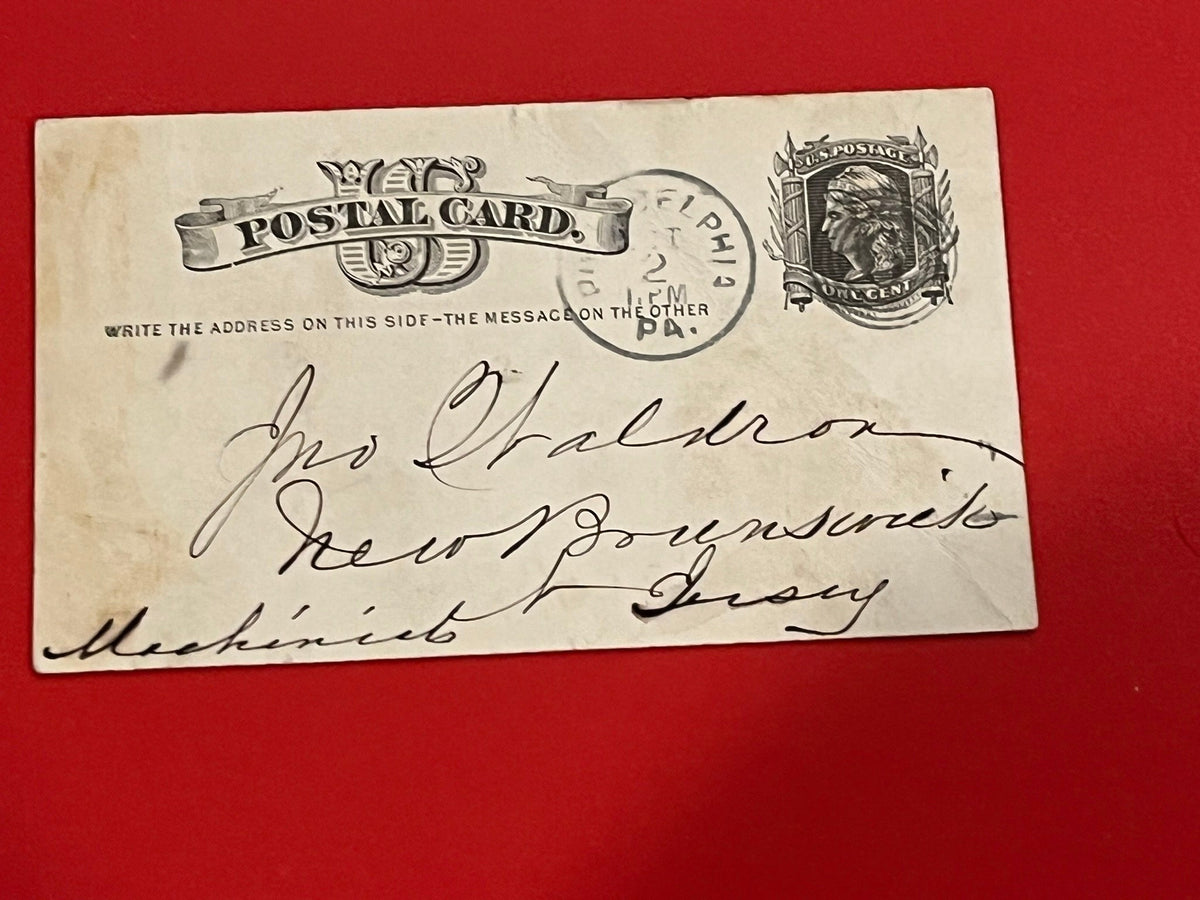 US
POSTAL CARD.
WRITE THE ADDRESS ON THIS SIDE-THE MESSAGE ON THE OTHER
2
1 PM
PA.
U.S. POSTAGE
ONE CENT
Jno Waldron
New Brunswick
N Jersey
Machinist